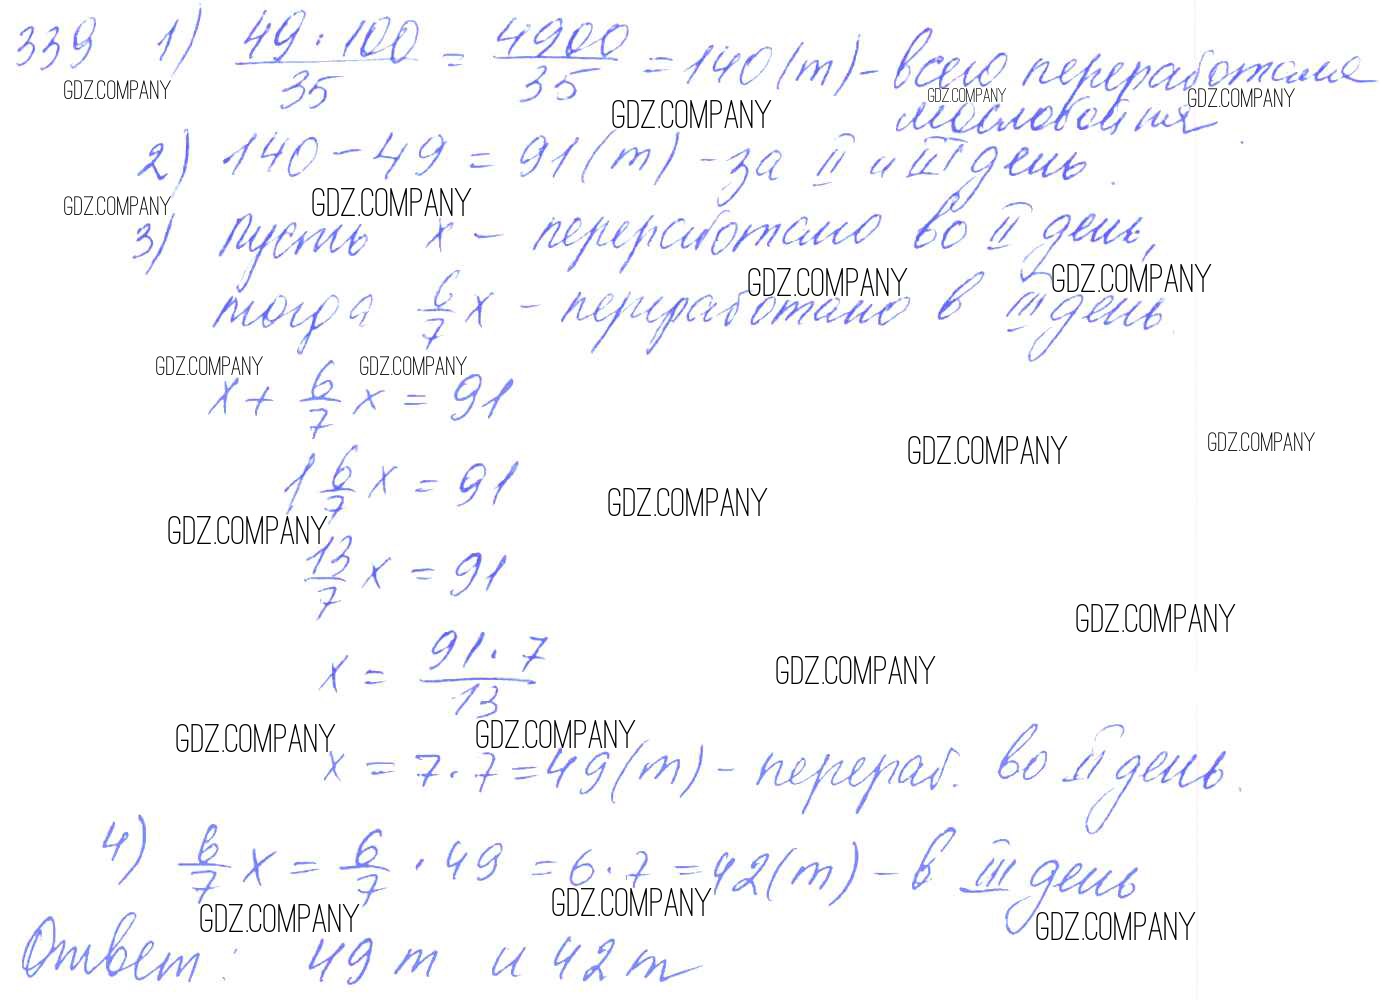 339 1) 49 · 100 / 35 = 4900 / 35 = 140 (т) – всего переработала
GDZ.COMPANY GDZ.COMPANY GDZ.COMPANY GDZ.COMPANY
маслобойня
2) 140 – 49 = 91 (т) – за II и III день.
GDZ.COMPANY GDZ.COMPANY
3) Пусть x – переработано во II день,
GDZ.COMPANY GDZ.COMPANY
тогда 6/7 x – переработано в III день.
GDZ.COMPANY GDZ.COMPANY
x + 6/7 x = 91
GDZ.COMPANY GDZ.COMPANY
1 6/7 x = 91
GDZ.COMPANY
GDZ.COMPANY
13/7 x = 91
GDZ.COMPANY
x = 91 · 7 / 13
GDZ.COMPANY
GDZ.COMPANY GDZ.COMPANY
x = 7 · 7 = 49 (т) – перераб. во II день.
4) 6/7 x = 6/7 · 49 = 6 · 7 = 42 (т) – в III день
GDZ.COMPANY GDZ.COMPANY GDZ.COMPANY
Ответ: 49 т и 42 т